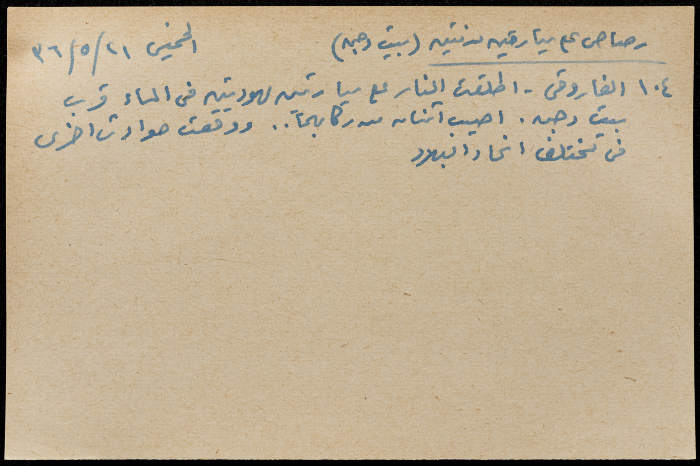 رصاص على سيارتين مدنيتين (بيت دجن) الخميس ٣٦/٥/٢١
١٠٤ الفاروقي - اطلقت النار على سيارتين يهوديتين في المساء قرب
بيت دجن. اصيب اثنان من ركابهما.. ووقعت حوادث اخرى
في مختلف انحاء البلاد